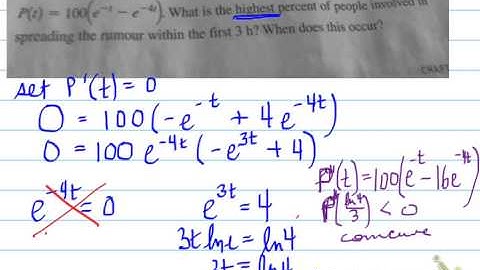 P(t) = 100(e^{-t} - e^{-4t}). What is the highest percent of people involved in
spreading the rumour within the first 3 h? When does this occur?
set P'(t) = 0
0 = 100(-e^{-t} + 4e^{-4t})
0 = 100 e^{-4t} (-e^{3t} + 4)
e^{-4t} = 0
e^{3t} = 4
3t ln e = ln 4
P''(t) = 100(e^{-t} - 16e^{-4t})
P''(ln 4/3) < 0
concave